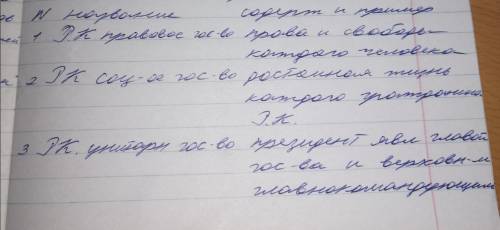 N название содерж и пример
1 РК правовое гос-во права и свободы
каждого человека
2 РК соц-ое гос-во достойная жизнь
каждого гражданина
Р.К.
3 РК. унитарн гос-во президент явл главой
гос-ва и верховн-м
главнокомандующим